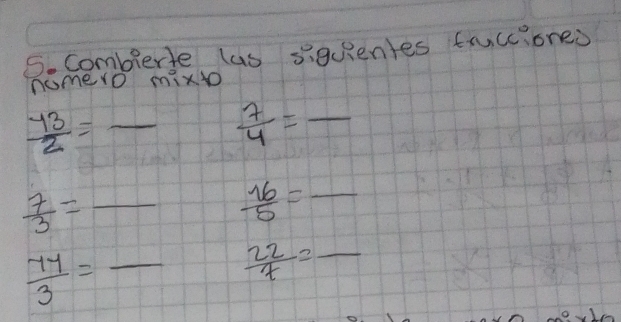 5. Combierte las siguientes fracciones
numero mixto
13/2 = — 7/4 = —
7/3 = — 16/5 = —
14/3 = — 22/7 = —
mixto